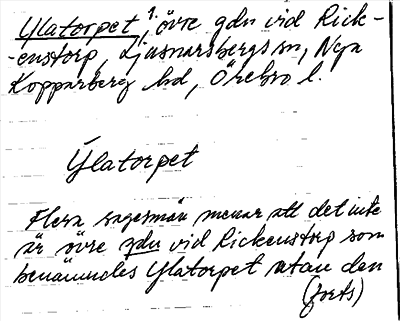 Ylatorpet, 1. övre gdn vid Rick-
-enstorp, Ljusnarsbergs sn, Nya
Kopparberg hd, Örebro l.
Ylatorpet
Flera sagesmän menar att det inte
är övre gdn vid Rickenstorp som
benämndes Ylatorpet utan den
(forts)